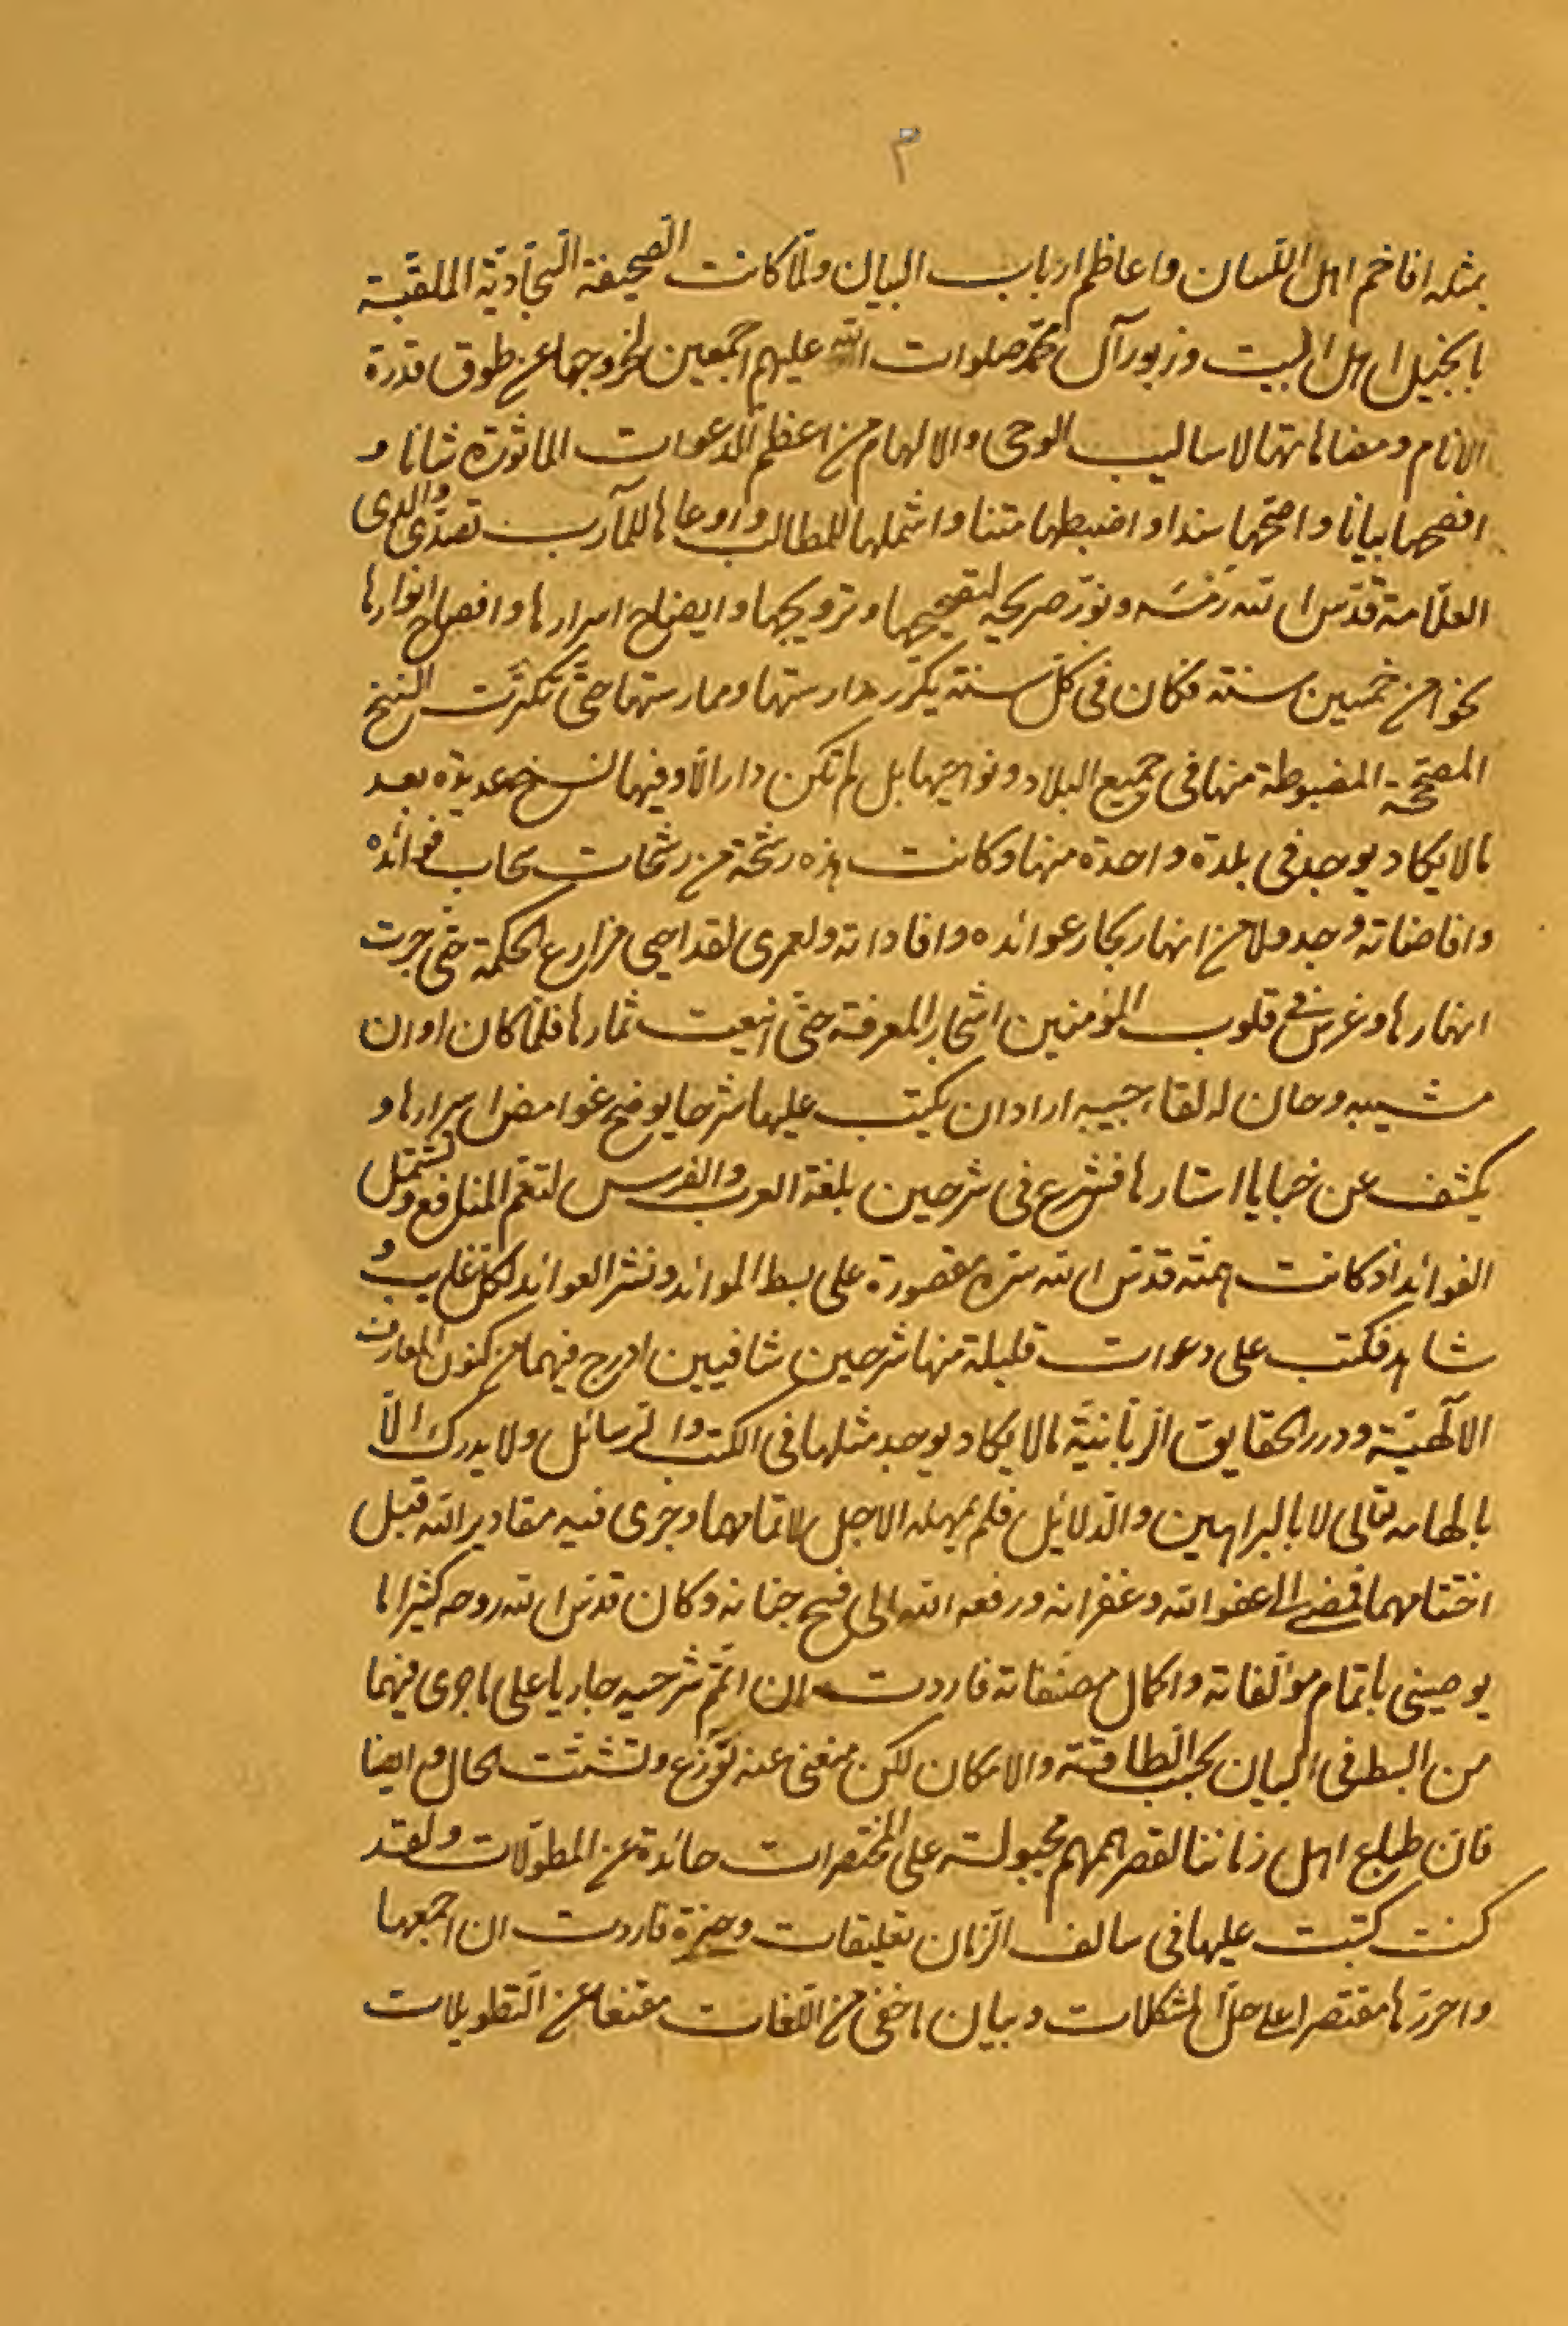 م
بمثله افاخم اهل اللّسان واعاظم ارباب البيان ولمّا كانت الصّحيفة السّجّاديّة الملقّبة
بانجيل اهل البيت وزبور آل محمّد صلوات اللّه عليهم اجمعين لخروجها عن طوق قدرة
الانام ومضاهاتها لاساليب الوحى والالهام من اعظم الدّعوات الماثورة شانا و
افصحها بيانا واصحّها سندا واضبطها متنا واشملها للمطالب واوعاها للمآرب تصدّى والدى
العلّامة قدّس اللّه رمسه ونوّر ضريحه لتصحيحها وترويجها وايضاح اسرارها وافصاح انوارها
نحوا من خمسين سنة فكان فى كلّ سنة يكرّر مدارستها وممارستها حتّى تكثّرت النسخ
المصحّحة المضبوطة منها فى جميع البلاد ونواحيها بل لم تكن دار الّا وفيها نسخ عديدة بعد
ما لا يكاد يوجد فى بلدة واحدة منها وكانت هذه رشحة من رشحات سحاب فوائده
وافاضاته وجدولا من انهار بحار عوائده وافاداته ولعمرى لقد احيى مزارع الحكمة حتى جرت
انهارها وغرس فى قلوب المؤمنين اشجار المعرفة حتّى اينعت ثمارها فلمّا كان اوان
مشيبه وحان له لقاء حبيبه اراد ان يكتب عليها شرحا يوضح غوامض اسرارها و
يكشف عن خبايا استارها فشرع فى شرحين بلغة العرب والفرس لتعم المنافع وتشتمل
الفوائد اذ كانت همّته قدّس اللّه سرّه مقصورة على بسط الموائد ونشر العوائد لكلّ غايب و
شاهد فكتب على دعوات قليلة منها شرحين شافيين ادرج فيهما من كنوز المعارف
الالٓهيّة ودرر الحقايق الرّبّانيّة ما لا يكاد يوجد مثلها فى الكتب والرّسائل ولا يدرك الّا
بالهامه تعالى لا بالبراهين والدّلائل فلم يمهله الاجل لاتمامهما وجرى فيه مقادير اللّه قبل
اختتامهما فمضى الى عفو اللّه وغفرانه ورفعه اللّه الى فسح جنانه وكان قدّس اللّه روحه كثيرا ما
يوصينى باتمام مؤلّفاته واكمال مصنّفاته فاردت ان اتمّم شرحيه جاريا على ما جرى فيهما
من البسط فى البيان بحسب الطاقة والامكان لكن منعنى عنه توزّع وتشتّت الحال وايضا
فانّ طباع اهل زماننا لقصر هممهم مجبولة على المختصرات حائدة عن المطوّلات ولقد
كنت كتبت عليها فى سالف الزّمان تعليقات وجيزة فاردت ان اجمعها
واحرّرها مقتصرا على حلّ المشكلات وبيان ما خفى من اللّغات مقتنعا عن التّطويلات